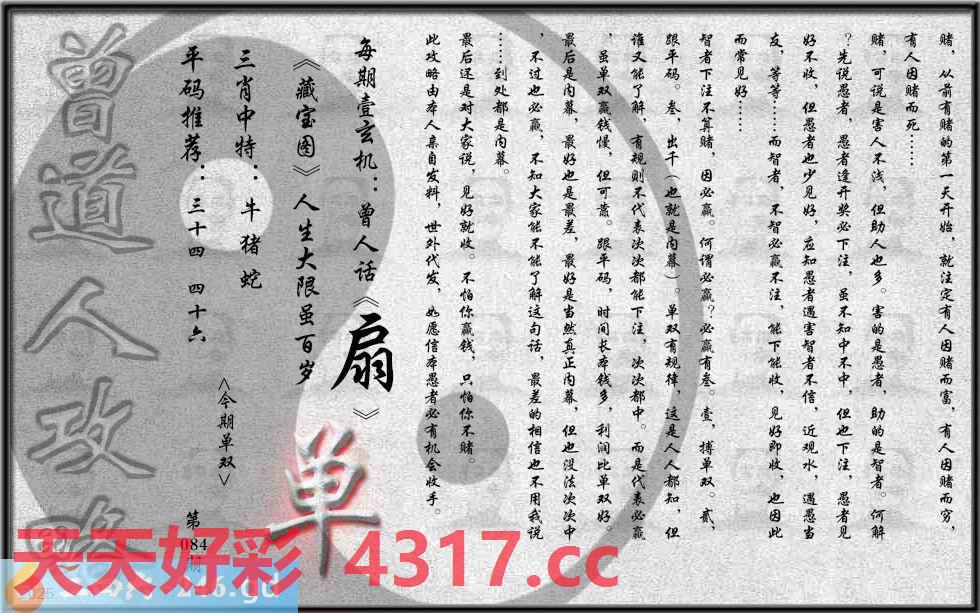 赌，从前有赌的第一天开始，就注定有人因赌而富，有人因赌而穷，
有人因赌而死……
赌，可说是害人不浅，但助人也多。害的是愚者，助的是智者。何解
？先说愚者，愚者逢开奖必下注，虽不知中不中，但也下注，愚者见
好不收，但愚者也少见好，应知愚者遇害智者不信，近观水，遇愚当
友，等等……而智者，不智必赢不注，能下能收，见好即收，也因此
而常见好……
智者下注不算赌，因必赢。何谓必赢？必赢有叁。壹，搏单双。贰，
跟平码。叁，出千（也就是内幕）。单双有规律，这是人人都知，但
谁又能了解，有规则不代表次次都能下注，次次都中。而是代表必赢
，虽单双赢钱慢，但可靠。跟平码，时间长本钱多，利润比单双好。
最后是内幕，最好也是最差，最好是当然真正内幕，但也没法次次中
，不过也必赢，不知大家能不能了解这句话，最差的相信也不用我说
……到处都是内幕。
最后还是对大家说，见好就收。不怕你赢钱，只怕你不赌。
此攻略由本人亲自发料，世外代发，如愿信本愚者必有机会收手。
每期壹玄机：曾人话《扇》
《藏宝图》人生大限虽百岁
三肖中特：牛 猪 蛇
平码推荐：三十四 四十六
<今期单双>
单
第
084
期
曾道人攻略
天天好彩 4317.cc
246.gd
2025